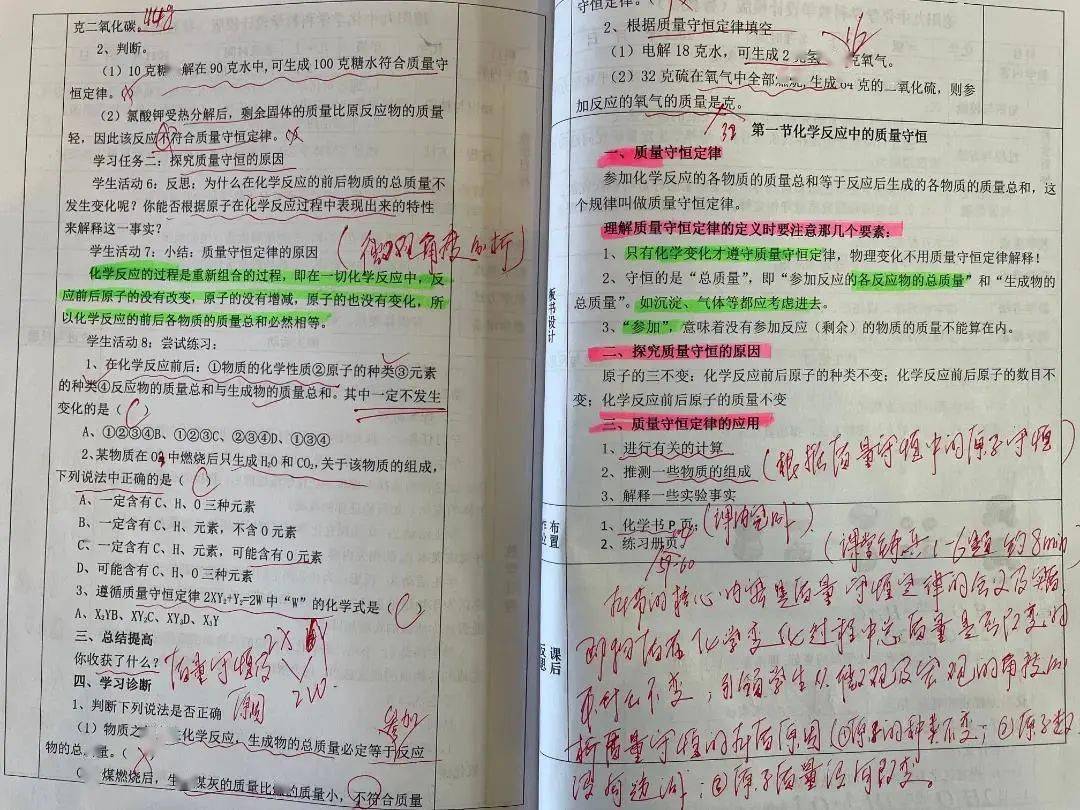 克二氧化碳。44g
2、判断。
(1) 10克糖 解在90克水中,可生成100克糖水符合质量守
恒定律。
(2) 氯酸钾受热分解后,剩余固体的质量比原反应物的质量
轻,因此该反应不符合质量守恒定律。
学习任务二:探究质量守恒的原因
学生活动6:反思:为什么在化学反应的前后物质的总质量不
发生变化呢?你能否根据原子在化学反应过程中表现出来的特性
来解释这一事实?
学生活动7:小结:质量守恒定律的原因
(微观角度分析)
化学反应的过程是重新组合的过程,即在一切化学反应中,反
应前后原子的没有改变,原子的没有增减,原子的也没有变化,所
以化学反应的前后各物质的质量总和必然相等。
学生活动8:尝试练习:
1、在化学反应前后:①物质的化学性质②原子的种类③元素
的种类④反应物的质量总和与生成物的质量总和。其中一定不发生
变化的是( C )
A、①②③④B、①②③C、②③④D、①③④
2、某物质在O2中燃烧后只生成H2O和CO2,关于该物质的组成,
下列说法中正确的是( C )
A、一定含有C、H、O三种元素
B、一定含有C、H、元素,不含O元素
C、一定含有C、H、元素,可能含有O元素
D、可能含有C、H、O三种元素
3、遵循质量守恒定律2XY2+Y2=2W中“W”的化学式是( C )
A、X2YB、XY2C、XY3D、X3Y
三、总结提高
你收获了什么?质量守恒及
原因
四、学习诊断
1、判断下列说法是否正确
参加
(1) 物质之 化学反应,生成物的总质量必定等于反应
物的总 量。(
煤燃烧后,生 煤灰的质量比 的质量小,不符合质量
守恒定律。(
2、根据质量守恒定律填空
16
(1) 电解18克水,可生成2克氢 克氧气。
(2) 32克硫在氧气中全部燃烧,生成64克的二氧化硫,则参
加反应的氧气的质量是克。
32
第一节化学反应中的质量守恒
一、质量守恒定律
参加化学反应的各物质的质量总和等于反应后生成的各物质的质量总和,这
个规律叫做质量守恒定律。
理解质量守恒定律的定义时要注意那几个要素:
1、只有化学变化才遵守质量守恒定律,物理变化不用质量守恒定律解释!
2、守恒的是“总质量”,即“参加反应的各反应物的总质量”和“生成物的
总质量”。如沉淀、气体等都应考虑进去。
3、“参加”,意味着没有参加反应(剩余)的物质的质量不能算在内。
二、探究质量守恒的原因
原子的三不变:化学反应前后原子的种类不变;化学反应前后原子的数目不
变;化学反应前后原子的质量不变
三、质量守恒定律的应用
1、进行有关的计算
2、推测一些物质的组成(根据质量守恒中的原子守恒)
3、解释一些实验事实
板书设计
布置
1、化学书P页;
2、练习册页。
课后
反思
本节的核心内容是质量守恒定律的含义及
物质在化学变化过程中总质量是否改变
为什么不变,引领学生从微观及宏观的角度
析质量守恒的本质原因①原子的种类不变;②原子数
没有;③原子质量没有改变。